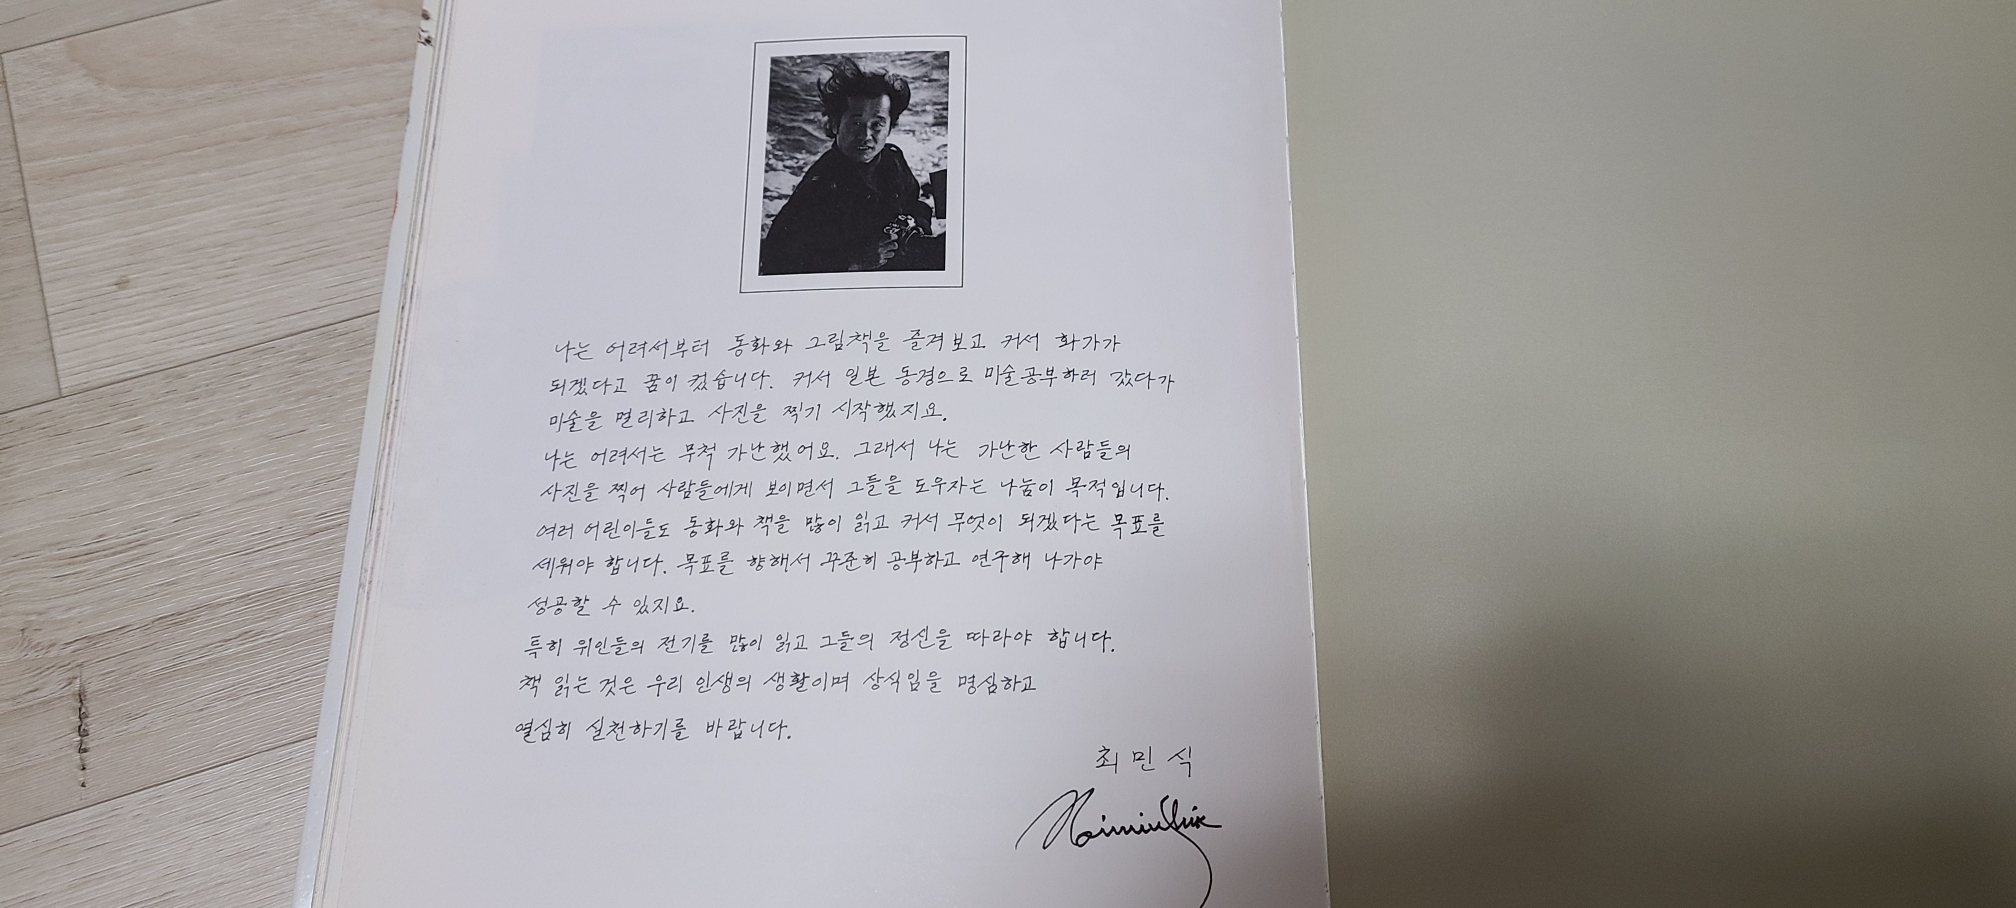 나는 어려서부터 동화와 그림책을 즐겨보고 커서 화가가
되겠다고 꿈이 컸습니다. 커서 일본 동경으로 미술공부하러 갔다가
미술을 멀리하고 사진을 찍기 시작했지요.
나는 어려서는 무척 가난했어요. 그래서 나는 가난한 사람들의
사진을 찍어 사람들에게 보이면서 그들을 도우자는 나눔이 목적입니다.
여러 어린이들도 동화와 책을 많이 읽고 커서 무엇이 되겠다는 목표를
세워야 합니다. 목표를 향해서 꾸준히 공부하고 연구해 나가야
성공할 수 있지요.
특히 위인들의 전기를 많이 읽고 그들의 정신을 따라야 합니다.
책 읽는 것은 우리 인생의 생활이며 상식임을 명심하고
열심히 실천하기를 바랍니다.
최민식